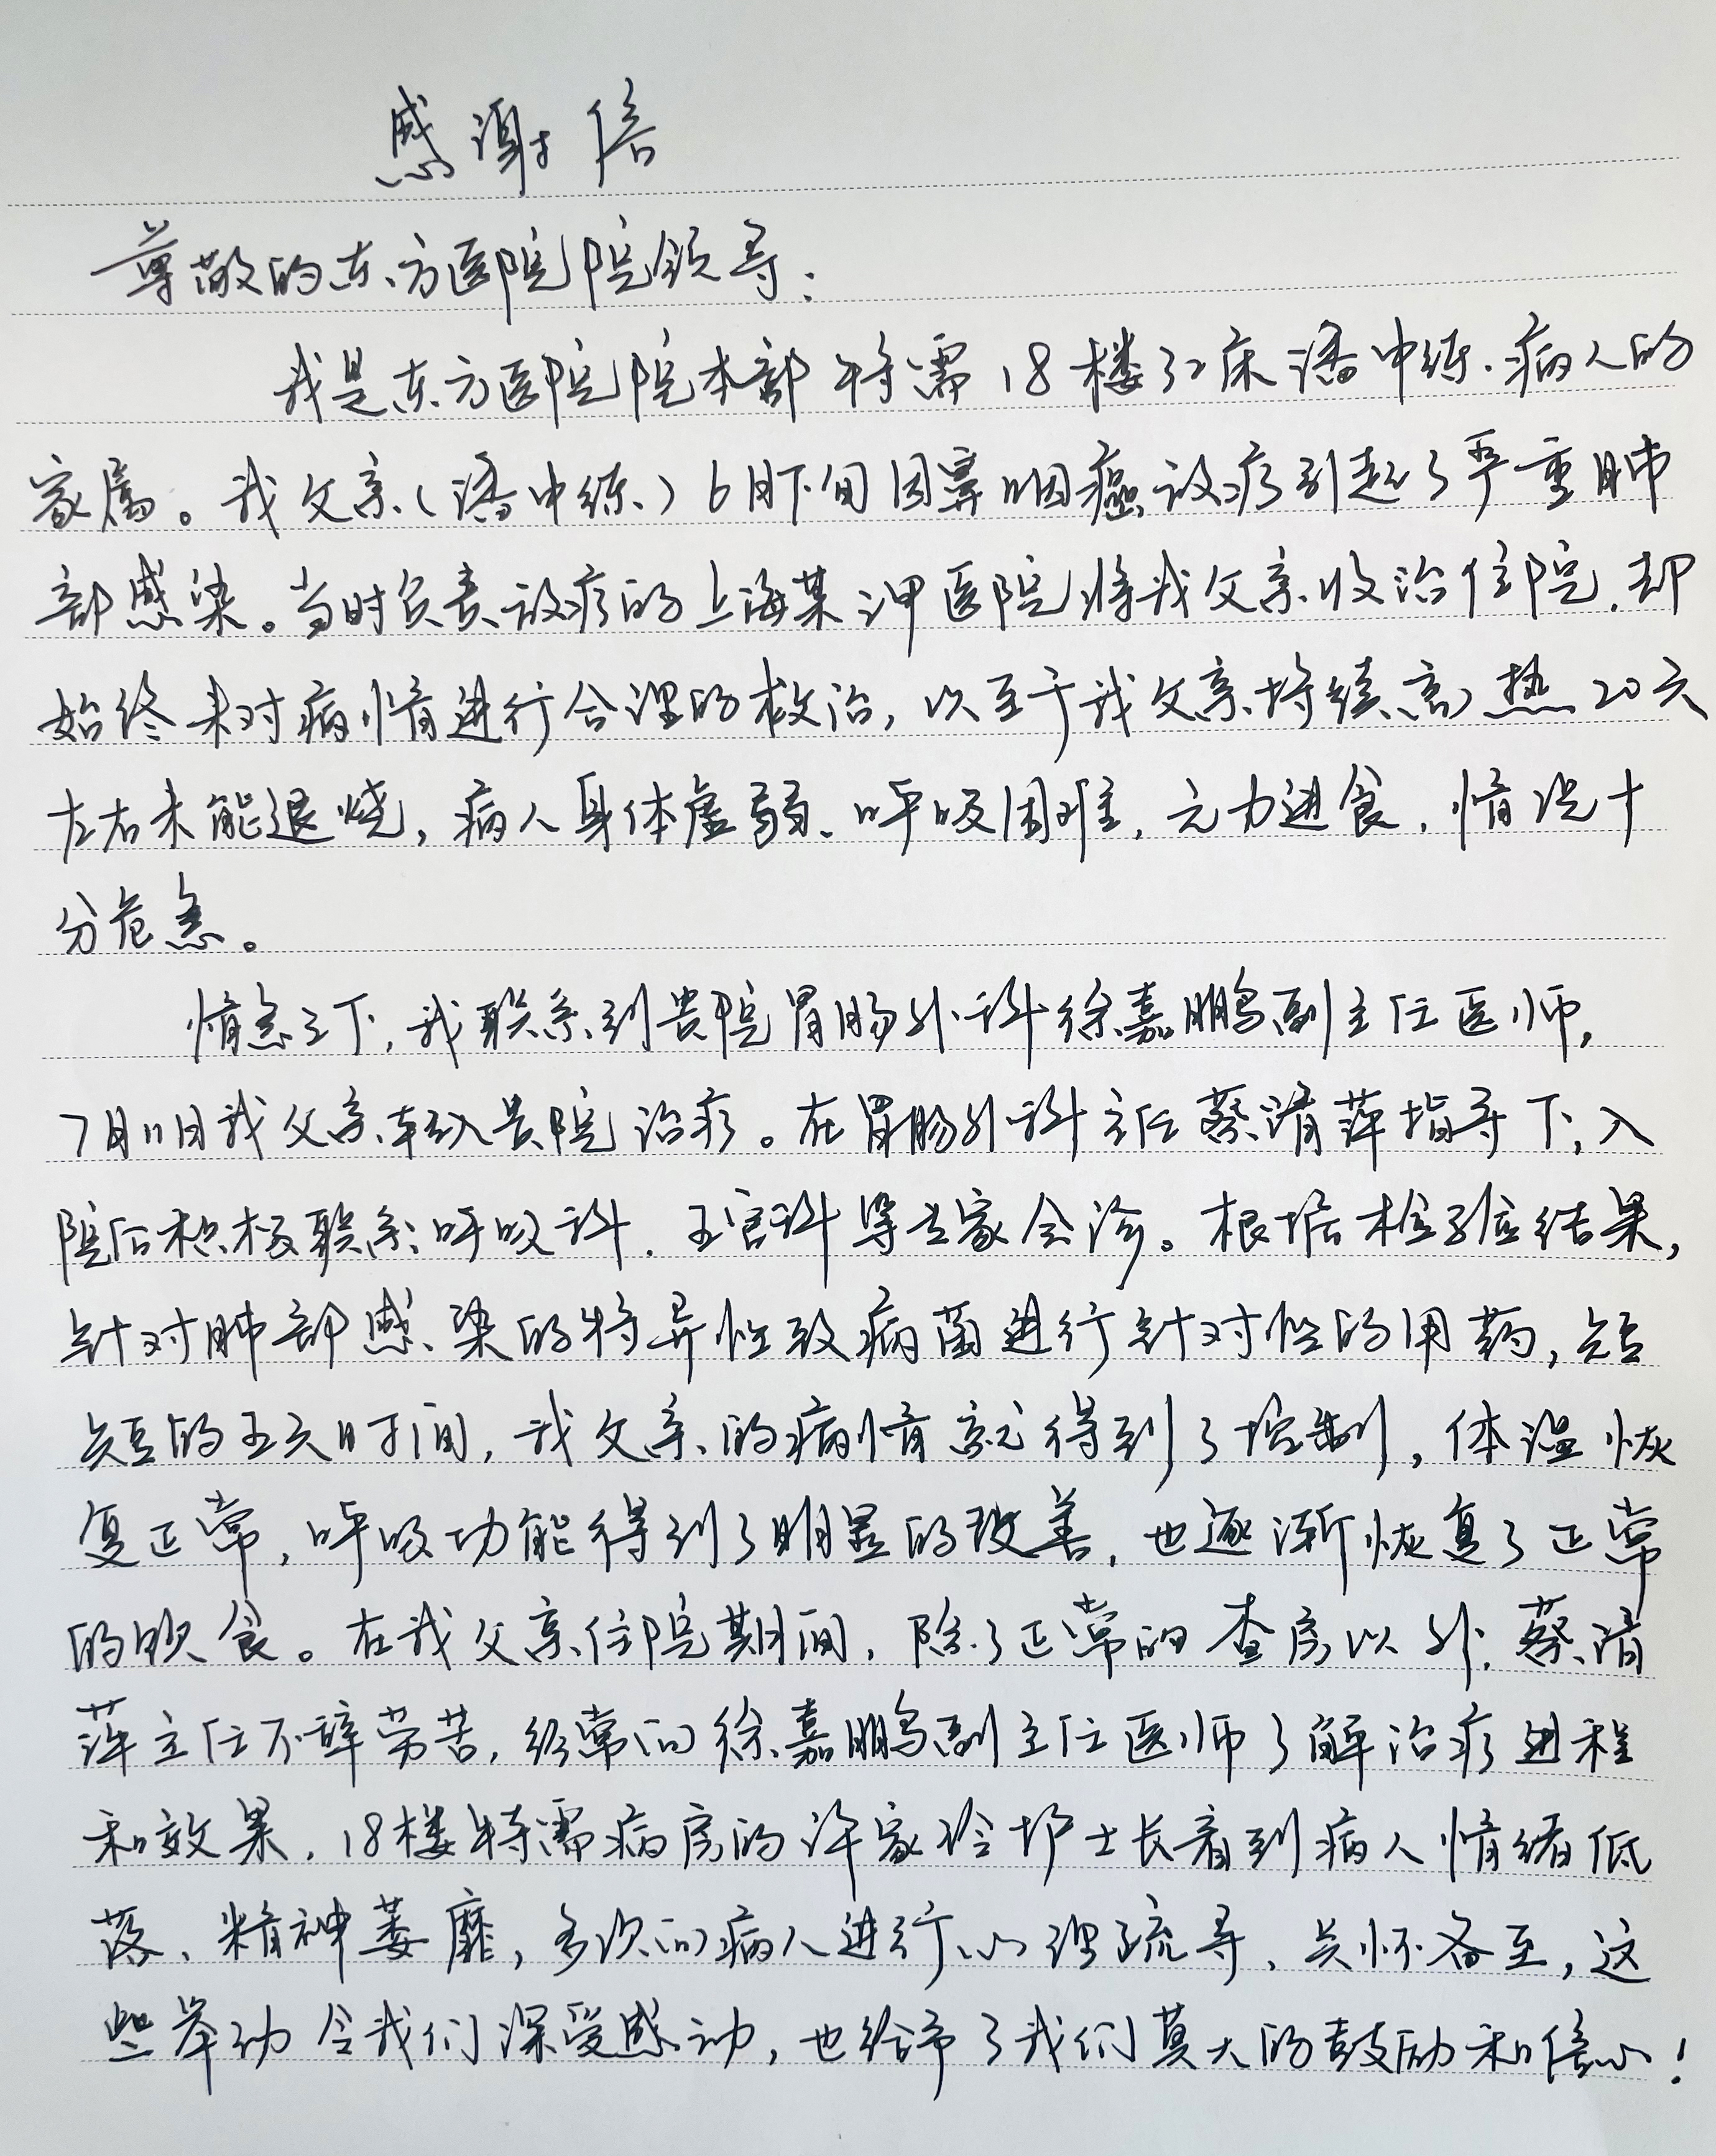 感谢信
尊敬的东方医院院领导：
我是东方医院院本部特需18楼32床潘中练病人的
家属。我父亲（潘中练）6月下旬因鼻咽癌放疗引起了严重肺
部感染。当时负责放疗的上海某三甲医院将我父亲收治住院，却
始终未对病情进行合理的救治，以至于我父亲持续高热20天
左右未能退烧，病人身体虚弱、呼吸困难，无力进食，情况十
分危急。
情急之下，我联系到贵院胃肠外科徐嘉鹏副主任医师，
7月11日我父亲转入贵院治疗。在胃肠外科主任蔡清萍指导下，入
院后积极联系呼吸科、五官科等专家会诊。根据检验结果，
针对肺部感染的特异性致病菌进行针对性的用药，短
短的五天时间，我父亲的病情就得到了控制，体温恢
复正常，呼吸功能得到了明显的改善，也逐渐恢复了正常
的饮食。在我父亲住院期间，除了正常的查房以外，蔡清
萍主任不辞劳苦，经常向徐嘉鹏副主任医师了解治疗进程
和效果，18楼特需病房的许家玲护士长看到病人情绪低
落、精神萎靡，多次向病人进行心理疏导、关怀备至，这
些举动令我们深受感动，也给予了我们莫大的鼓励和信心！